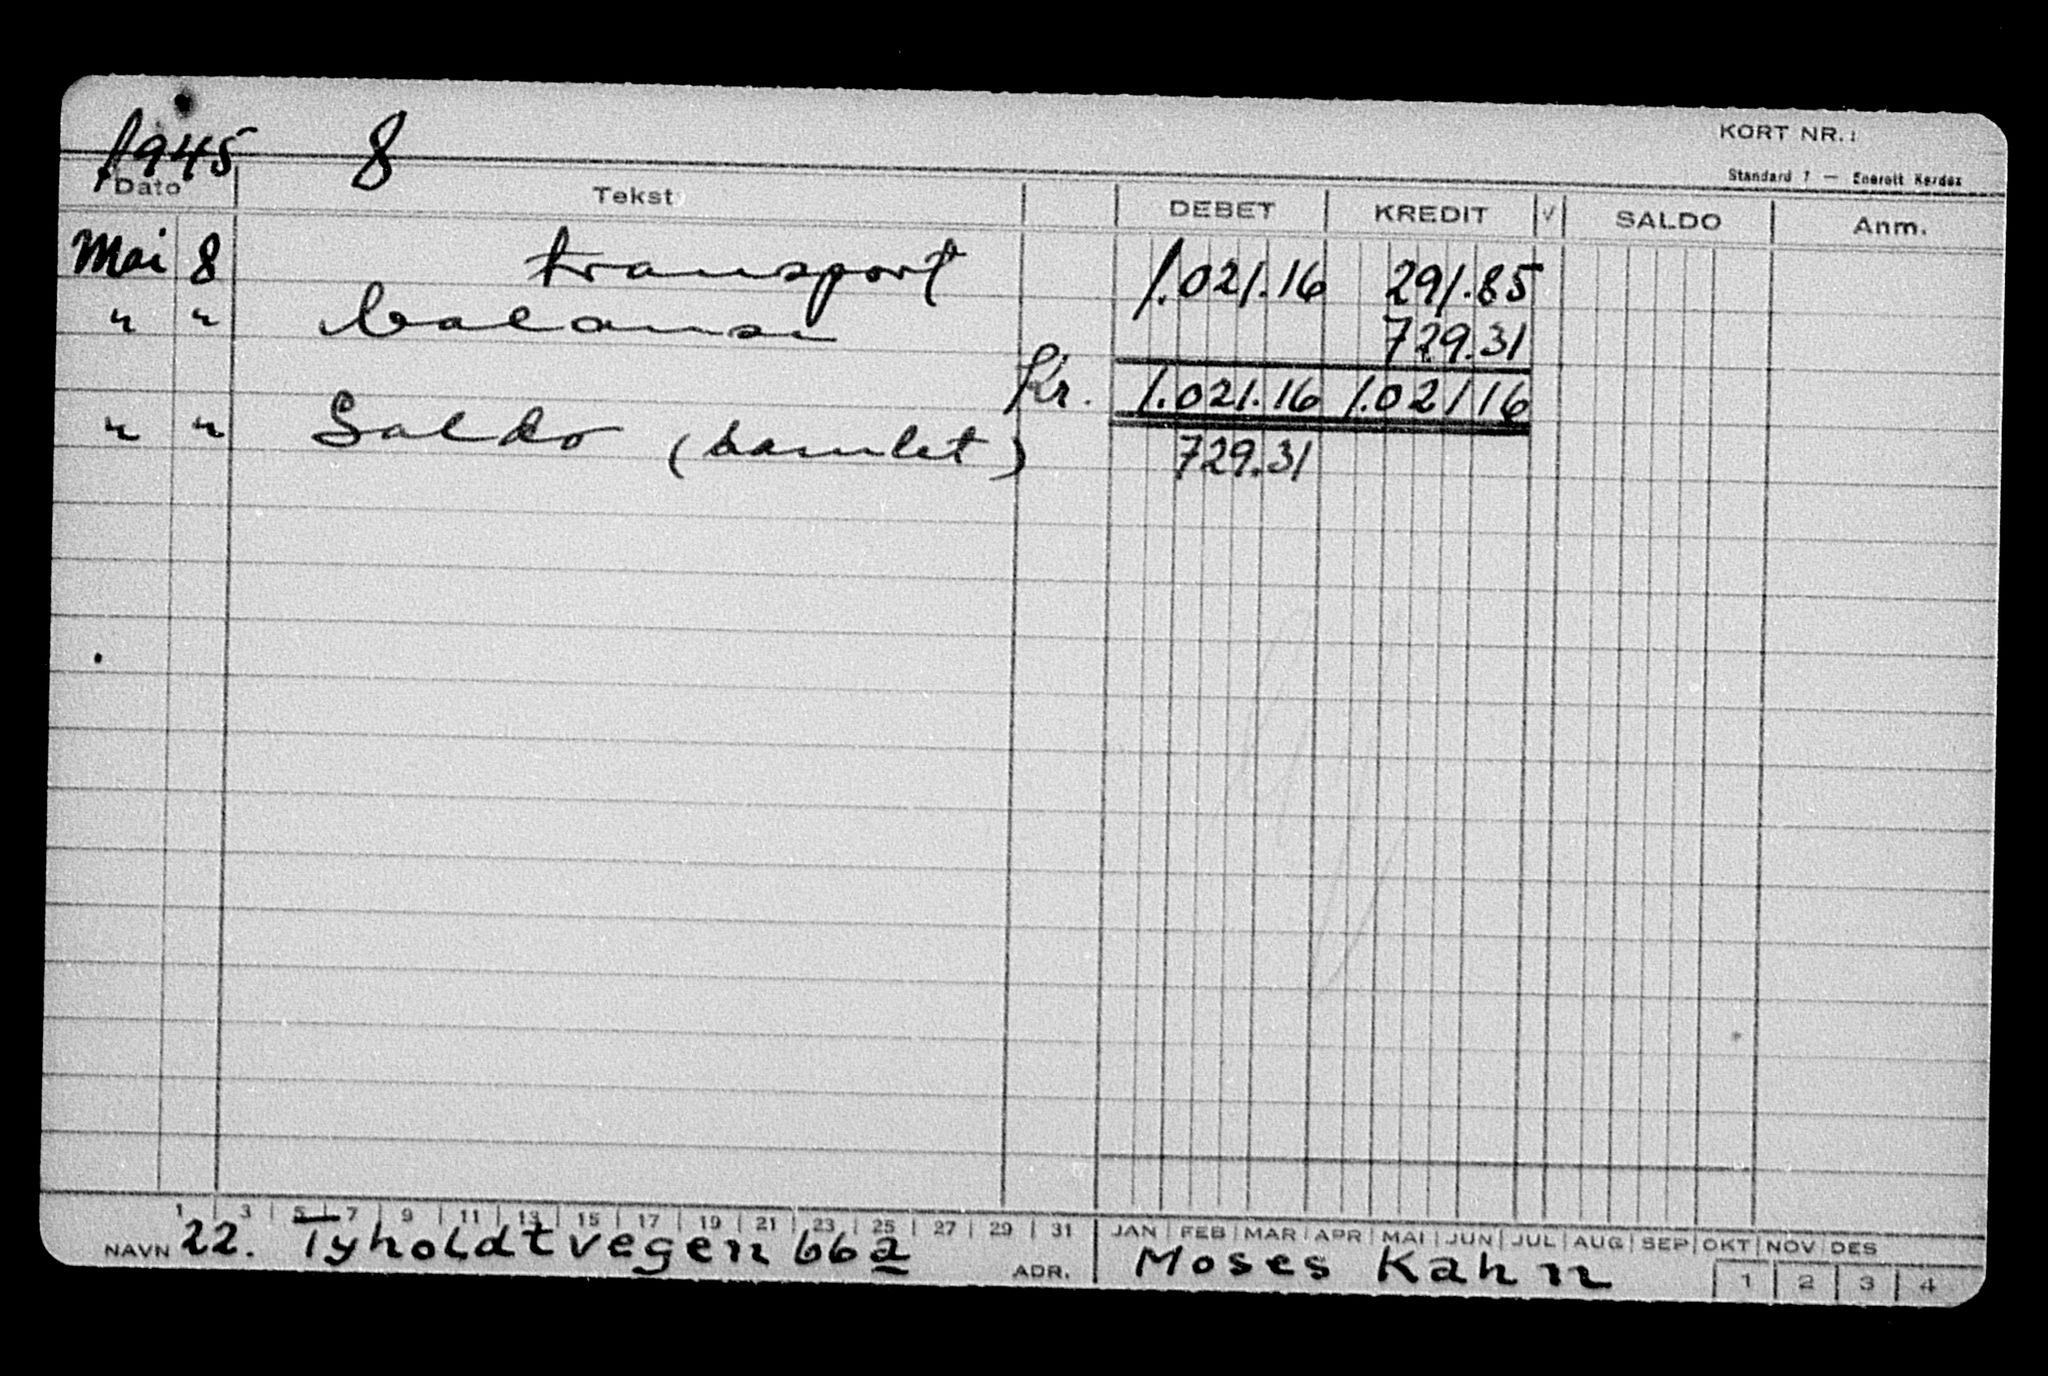 KORT NR.:
1945 8
Standard 1 — Enerett Kardex
Dato Tekst DEBET KREDIT √ SALDO Anm.
Mai 8 transport 1.021.16 291.85
" " balanse 729.31
Kr. 1.021.16 1.021 16
" " Saldo (samlet) 729.31
1 3 5 7 9 11 13 15 17 19 21 23 25 27 29 31 JAN FEB MAR APR MAI JUN JUL AUG SEP OKT NOV DES
NAVN 22. Tyholdtvegen 66a ADR. Moses Kahn 1 2 3 4